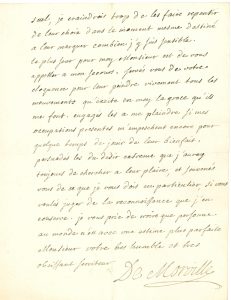 seul, je craindrois trop de les faire repentir
de leur choix dans le moment mesme destiné
a leur marquer combien j'y suis sensible.
le plus sur pour moy Monsieur est de vous
appeller a mon secours, servés vous de votre
eloquence pour leur peindre vivement tous les
mouvements qu'excite en moy la grace qu'ils
me font, engagés les a me plaindre si mes
occupations presentes m'empeschent encore pour
quelque temps de jouir de leur bienfait,
persuadés les du desir extreme que j'auray
toujours de chercher a leur plaire, et souvenés
vous de ce que je vous dois en particulier si vous
voulés juger de la reconnoissance que j'en
conserve. je vous prie de croire que personne
au monde n'est avec une estime plus parfaite
Monsieur votre tres humble et tres
obeissant serviteur
De Morville